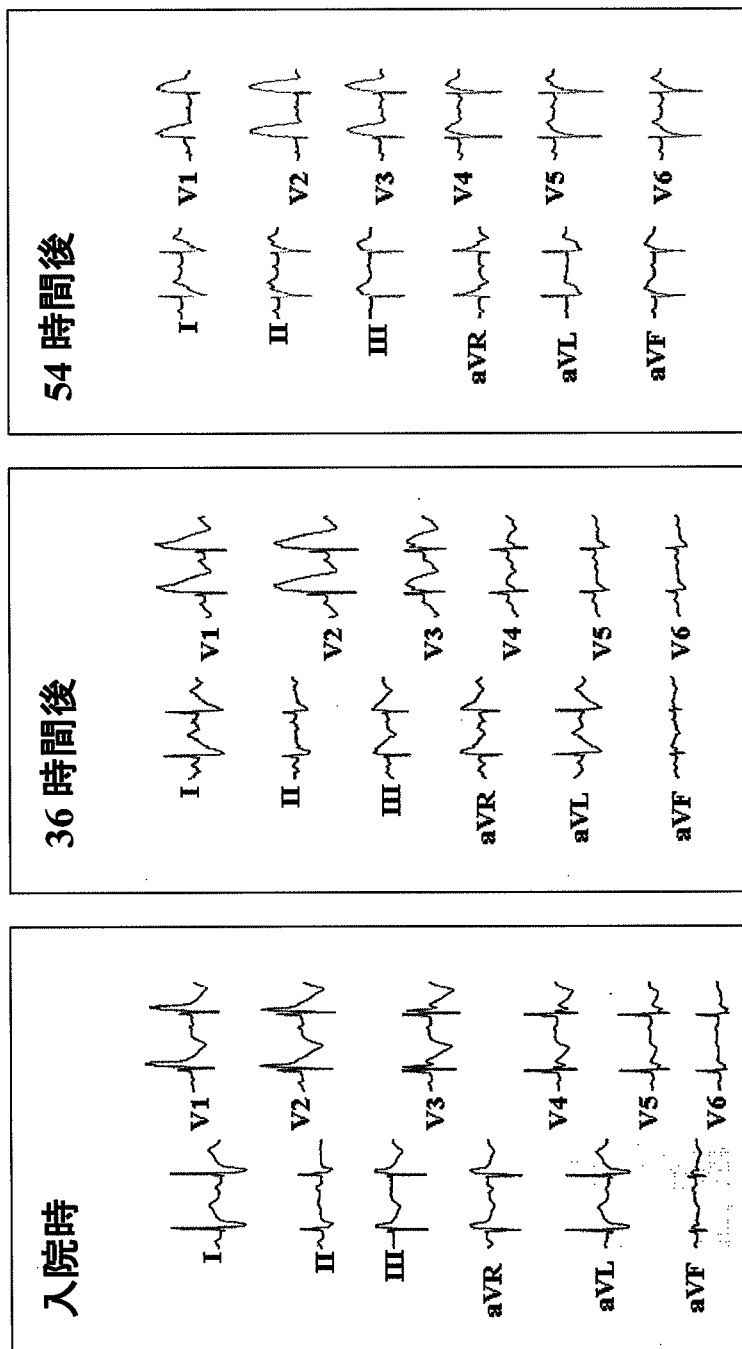 入院時
I
II
III
aVR
aVL
aVF
V1
V2
V3
V4
V5
V6
36 時間後
I
II
III
aVR
aVL
aVF
V1
V2
V3
V4
V5
V6
54 時間後
I
II
III
aVR
aVL
aVF
V1
V2
V3
V4
V5
V6